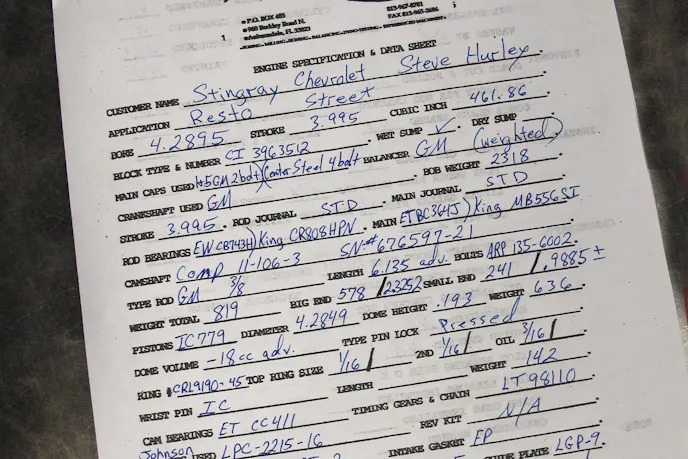 • P.O. BOX 683
• 960 Berkley Road N.
• Auburndale, FL 33823
813-967-8781
FAX 813-965-2686
• BORING • MILLING • HONING • BALANCING • DYNO-TESTING • EXPERIENCED MACHINERY •
ENGINE SPECIFICATION & DATA SHEET
CUSTOMER NAME Stingray Chevrolet Steve Hurley
APPLICATION Resto Street CUBIC INCH 461.86
BORE 4.2895 STROKE 3.995 WET SUMP ✓ DRY SUMP
BLOCK TYPE & NUMBER CI 3963512
MAIN CAPS USED 1+5 GM 2bolt) (Center Steel 4bolt BALANCER GM (weighted)
CRANKSHAFT USED GM BOB WEIGHT 2318
STROKE 3.995 ROD JOURNAL STD MAIN JOURNAL STD
ROD BEARINGS EW CB743H) King CR808HPN MAIN ETBC364J) King MB556SI
CAMSHAFT Comp 11-106-3 SN# 676597-21
TYPE ROD GM 3/8 LENGTH 6.135 adv. BOLTS ARP 135-6002
WEIGHT TOTAL 819 BIG END 578 / 2.3252 SMALL END 241 / .9885 ±
PISTONS IC779 DIAMETER 4.2849 DOME HEIGHT .193 WEIGHT 636
DOME VOLUME -18cc adv. TYPE PIN LOCK Pressed
RING # CRL9190-45 TOP RING SIZE 1/16 2ND 1/16 OIL 3/16
WRIST PIN IC LENGTH WEIGHT 142
CAM BEARINGS ET CC411 TIMING GEARS & CHAIN LT98110
Johnson USED LPC-2215-16 REV KIT N/A
INTAKE GASKET FP
GUIDE PLATE LGP-9